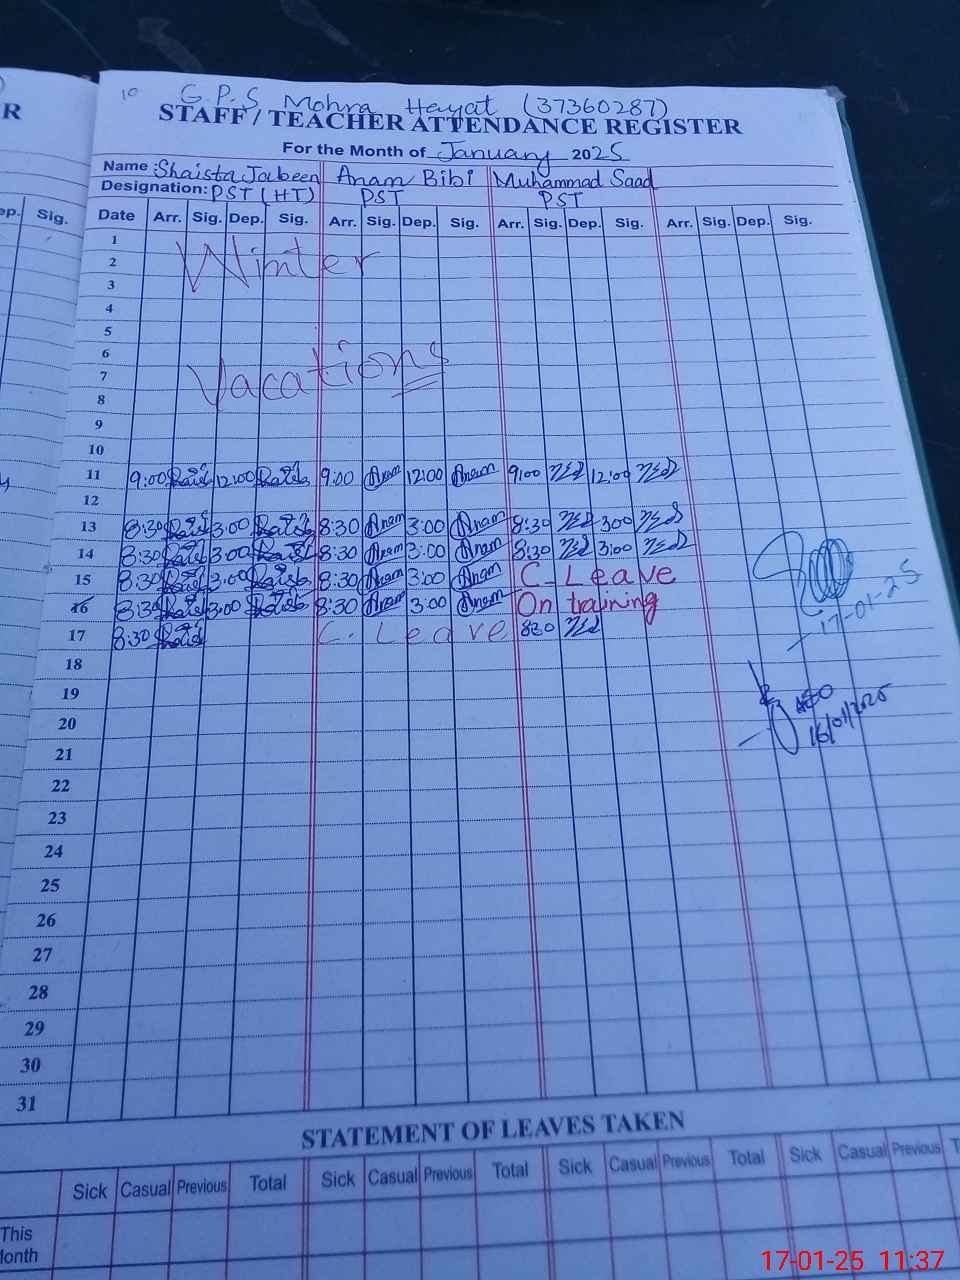 10
G.P.S Mohra Hayat (37360287)
R STAFF / TEACHER ATTENDANCE REGISTER
For the Month of January 2025
Name : Shaista Jabeen Anam Bibi Muhammad Saad
Designation: PST (HT) PST PST
ep. Sig. Date Arr. Sig. Dep. Sig. Arr. Sig. Dep. Sig. Arr. Sig. Dep. Sig. Arr. Sig. Dep. Sig.
1
2 Winter
3
4
5
6
7 Vacations
8
9
10
11 9:00 12:00 9:00 Anam 12:00 Anam 9:00 12:00
12
13 8:30 3:00 8:30 Anam 3:00 Anam 8:30 3:00
14 8:30 3:00 8:30 Anam 3:00 Anam 8:30 3:00
15 8:30 3:00 8:30 Anam 3:00 Anam C. Leave
16 8:30 3:00 8:30 Anam 3:00 Anam On training
17 8:30 C. Leave 830
17-01-25
18
19
AEO
20
16/01/2025
21
22
23
24
25
26
27
28
29
30
31
STATEMENT OF LEAVES TAKEN
Sick Casual Previous Total Sick Casual Previous Total Sick Casual Previous Total Sick Casual Previous T
This
onth
17-01-25 11:37